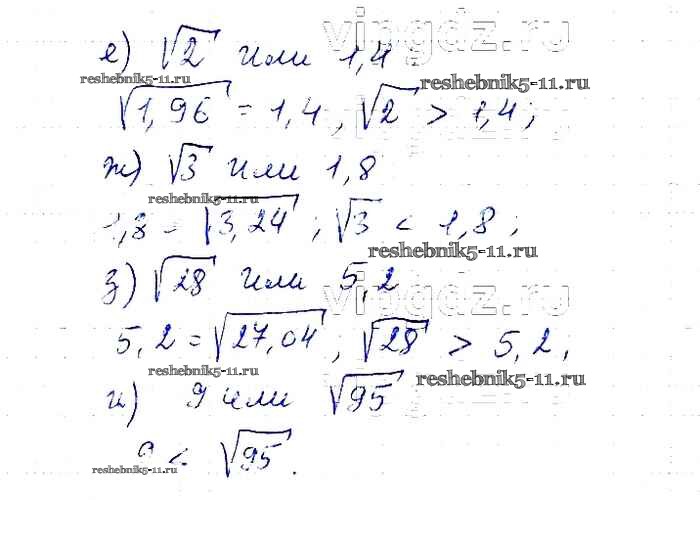 vipgdz.ru
е) √2 или 1,4
reshebnik5-11.ru reshebnik5-11.ru
√1,96 = 1,4, √2 > 1,4;
ж) √3 или 1,8
reshebnik5-11.ru
1,8 = √3,24 ; √3 < 1,8 ;
reshebnik5-11.ru
з) √28 или 5,2
vipgdz.ru
5,2 = √27,04 ; √28 > 5,2,
reshebnik5-11.ru reshebnik5-11.ru
и) 9 или √95
9 < √95.
reshebnik5-11.ru